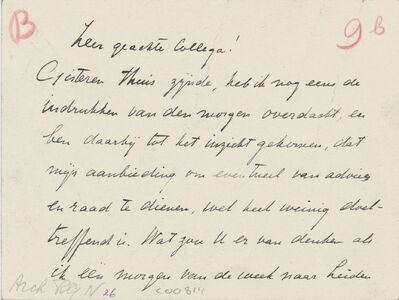 B
9b
Zeer geachte Collega!
Gisteren thuis zijnde, heb ik nog eens de
indrukken van den morgen overdacht, en
ben daarbij tot het inzicht gekomen, dat
mijn aanbieding om eventueel van advies
en raad te dienen, wel heel weinig doel-
treffend is. Wat zou U er van denken als
ik één morgen van de week naar Leiden
Arch 26
C00814